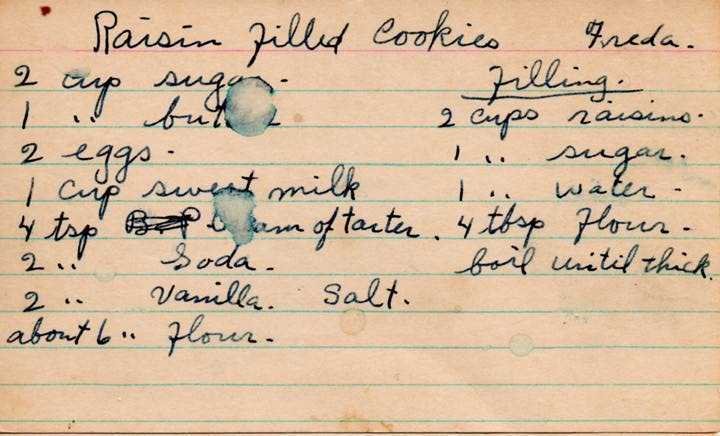 Raisin Filled Cookies Freda.
2 cup sugar.
1 ,, butter
2 eggs.
1 cup sweet milk
4 tsp Cream of tarter.
2 ,, Soda.
2 ,, Vanilla. Salt.
about 6 ,, Flour.
Filling.
2 cups raisins.
1 ,, sugar.
1 ,, water.
4 tbsp Flour.
boil until thick.